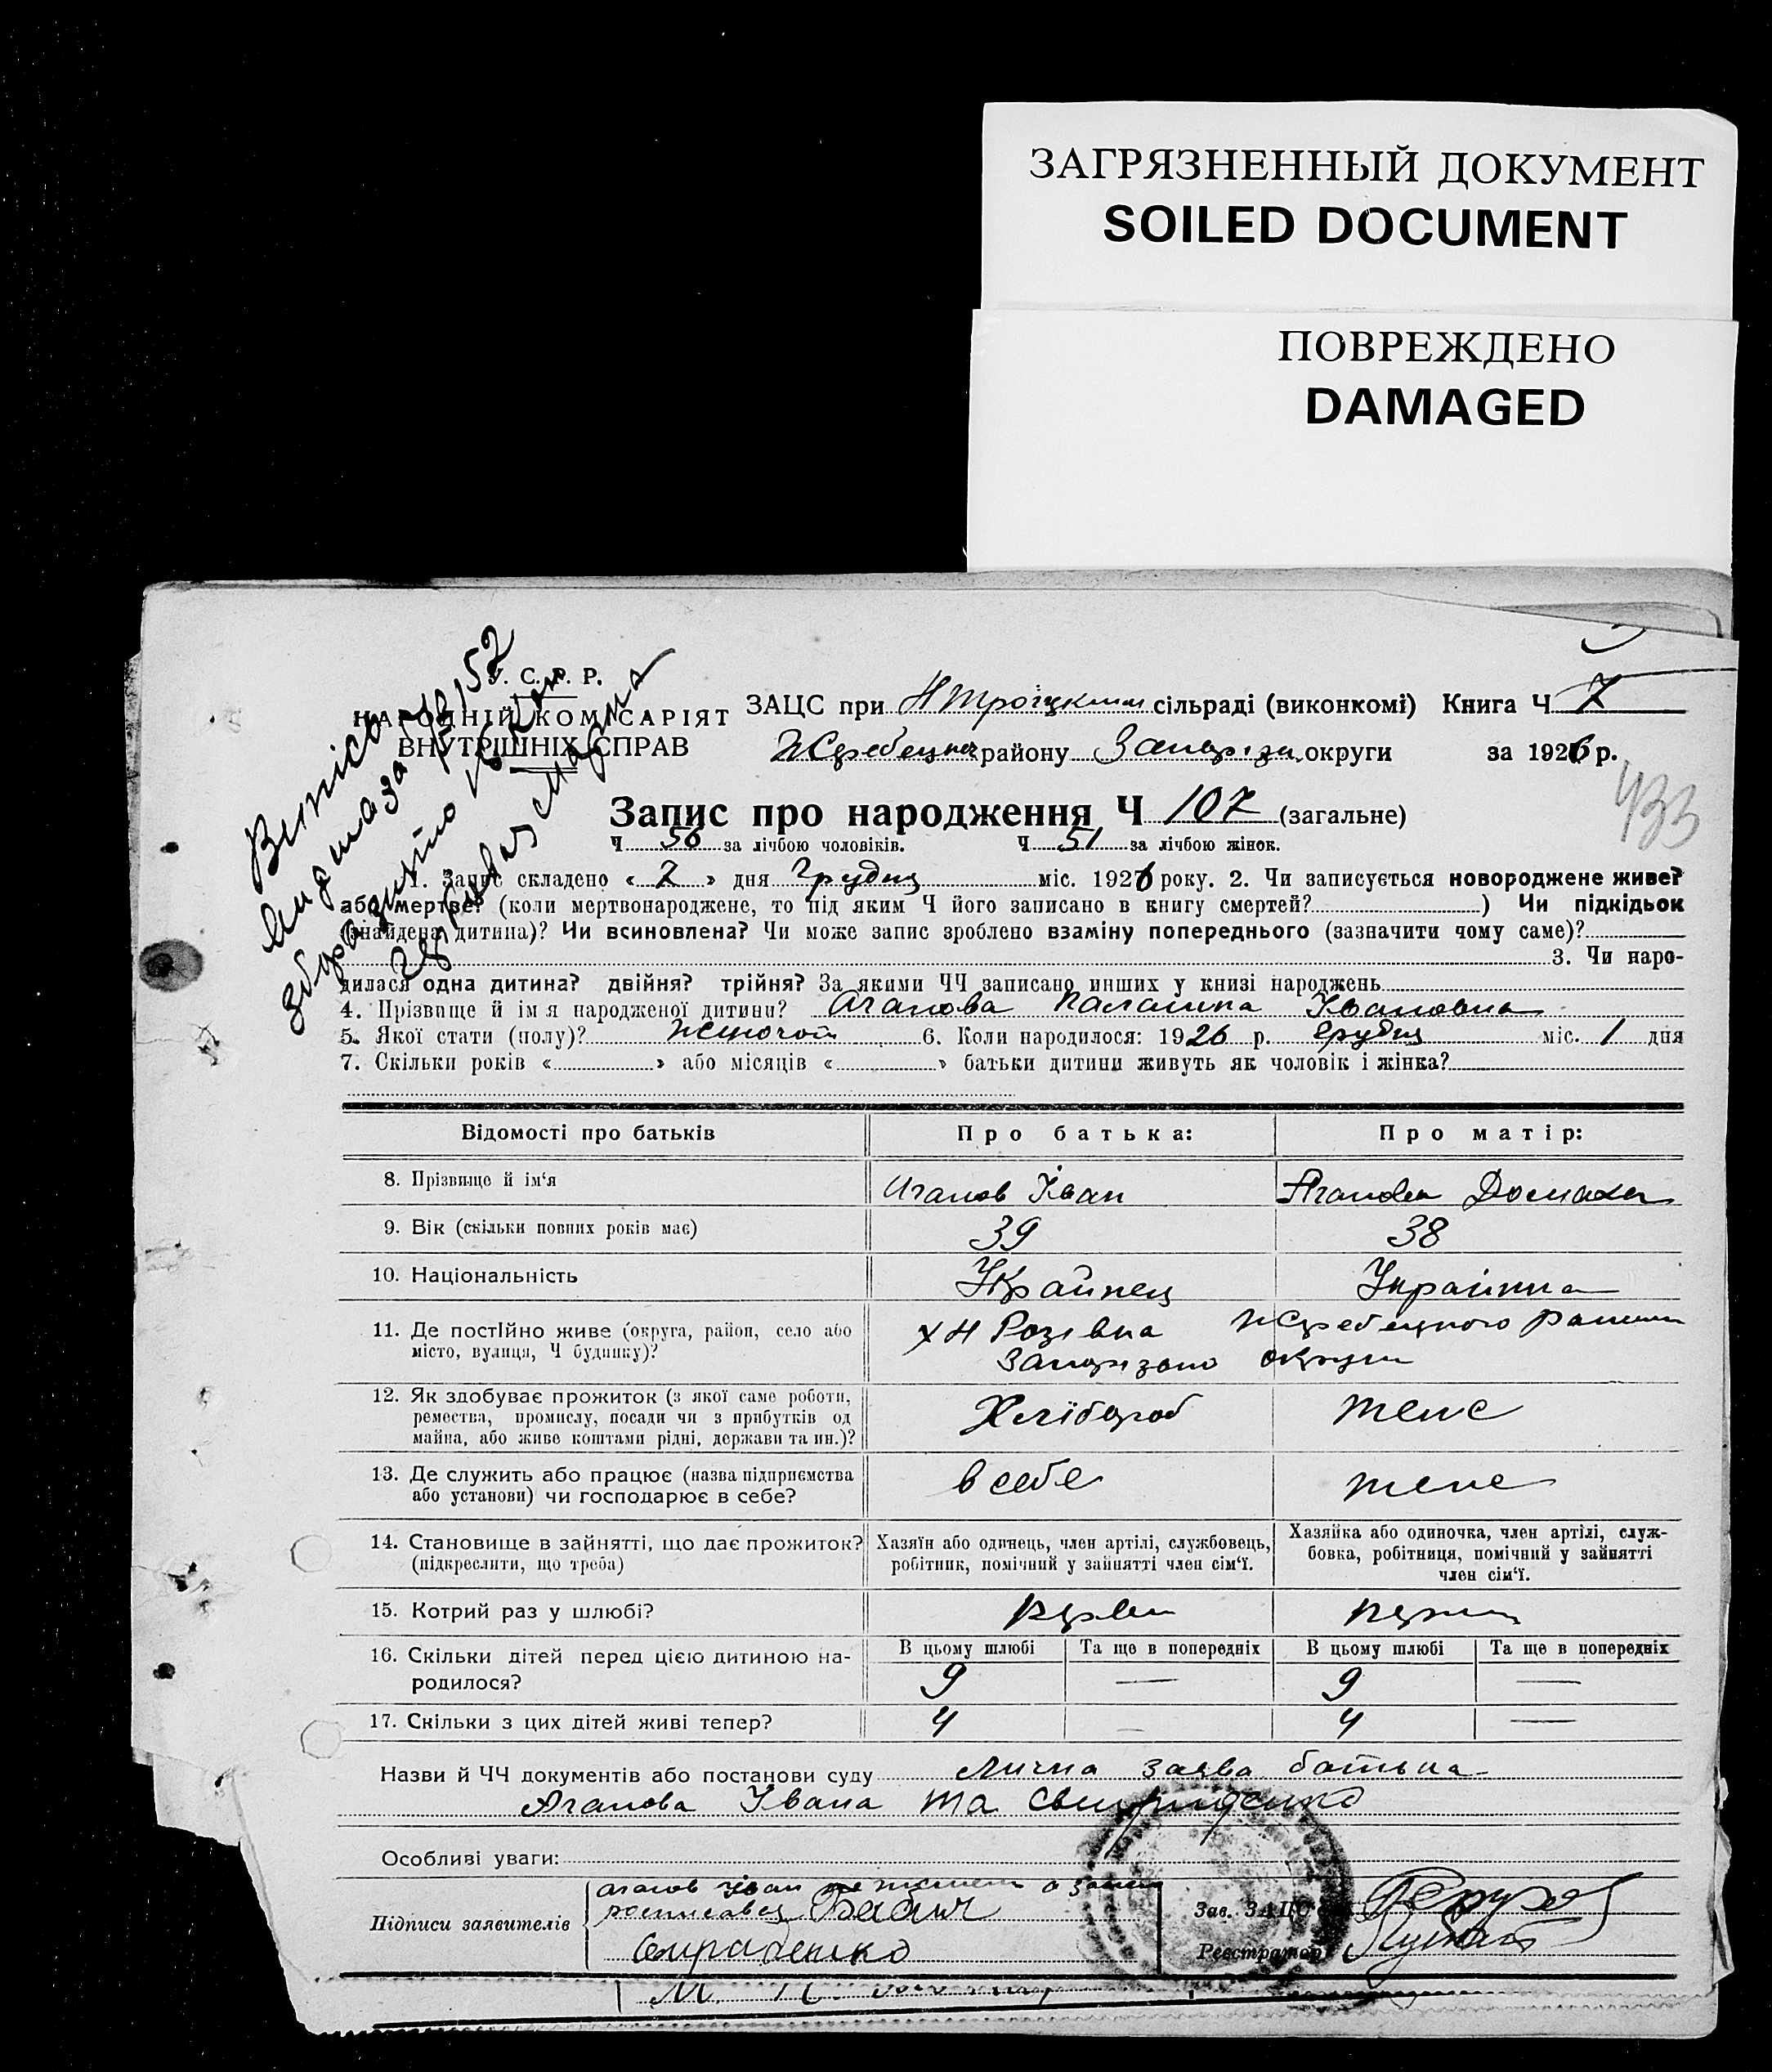 ЗАГРЯЗНЕННЫЙ ДОКУМЕНТ
SOILED DOCUMENT
ПОВРЕЖДЕНО
DAMAGED
У. С. Р. Р.
НАРОДНІЙ КОМІСАРІЯТ
ВНУТРІШНІХ СПРАВ
ЗАЦС при Н Троїцьким сільраді (виконкомі) Книга Ч 7
району округи за 1926 р.
433
Запис про народження Ч 107 (загальне)
Ч 56 за лічбою чоловіків. Ч 51 за лічбою жінок.
1. Запис складено « 2 » дня Грудня міс. 1926 року. 2. Чи записується новороджене живе?
або мертве? (коли мертвонароджене, то під яким Ч його записано в книгу смертей? ) Чи підкідьок
(знайдена дитина)? Чи всиновлена? Чи може запис зроблено взаміну попереднього (зазначити чому саме)?
3. Чи наро-
дилася одна дитина? двійня? трійня? За якими ЧЧ записано инших у книзі народжень
4. Прізвище й ім я народженої дитини? Агапова Палашка Івановна
5. Якої стати (полу)? жіночой 6. Коли народилося: 1926 р. Грудня міс. 1 дня
7. Скільки років « » або місяців « » батьки дитини живуть як чоловік і жінка?
Відомості про батьків Про батька: Про матір:
8. Прізвище й ім‘я Агапов Іван Агапова Домаха
9. Вік (скільки повних років має) 39 38
10. Національність Українец Українка
11. Де постійно живе (округа, район, село або х Н Розівка Жеребецкого
місто, вулиця, Ч будинку)? округи
12. Як здобуває прожиток (з якої саме роботи, Хлібороб теже
ремества, промислу, посади чи з прибутків од
майна, або живе коштами рідні, держави та ин.)?
13. Де служить або працює (назва підприємства в себе теже
або установи) чи господарює в себе?
14. Становище в зайнятті, що дає прожиток? Хазяїн або одинець, член артілі, службовець, Хазяйка або одиночка, член артілі, служ-
(підкреслити, що треба) робітник, помічний у зайнятті член сім‘ї. бовка, робітниця, помічний у зайнятті
член сім‘ї.
15. Котрий раз у шлюбі?
16. Скільки дітей перед цією дитиною на- В цьому шлюбі Та ще в попередніх В цьому шлюбі Та ще в попередніх
родилося? 9 — 9 —
17. Скільки з цих дітей живі тепер? 4 — 4 —
Назви й ЧЧ документів або постанови суду лична заява батька
Агапова Івана та
Особливі уваги:
агапов Іван
Підписи заявителів Бабич Зав. ЗАЦС
Реєстратор